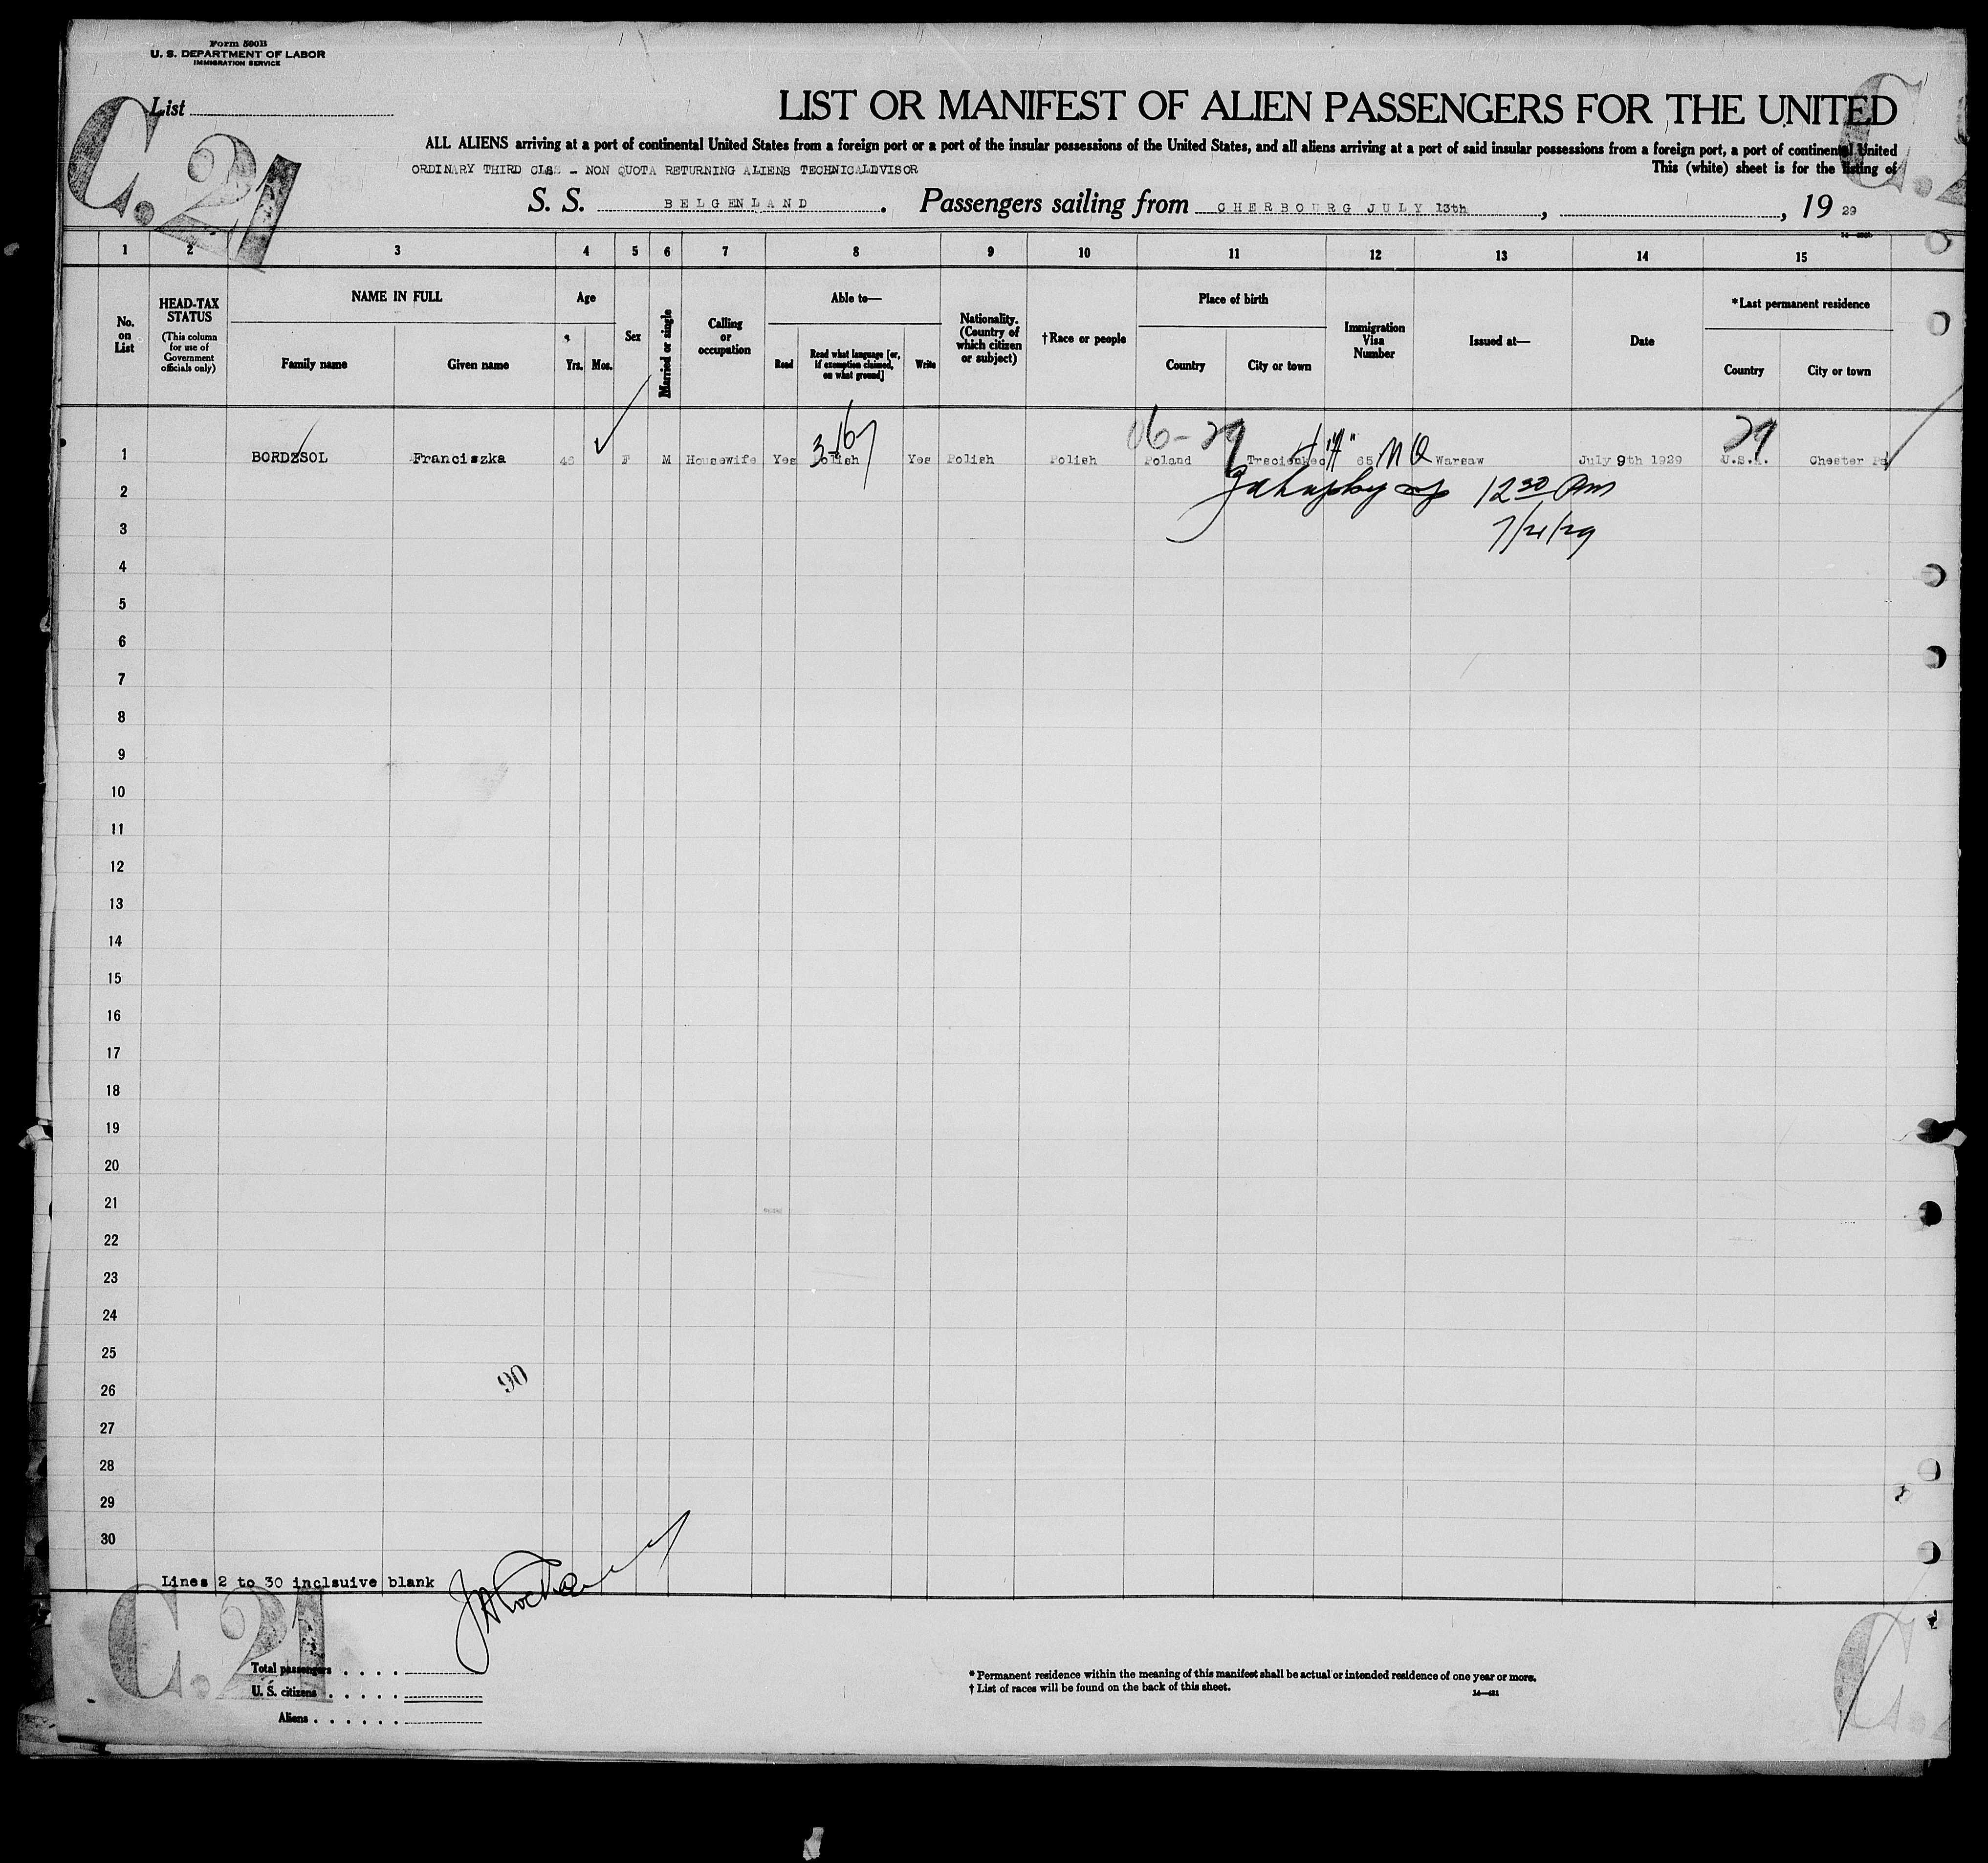 Form 500B
U. S. DEPARTMENT OF LABOR
IMMIGRATION SERVICE
C. 21
List
LIST OR MANIFEST OF ALIEN PASSENGERS FOR THE UNITED
ALL ALIENS arriving at a port of continental United States from a foreign port or a port of the insular possessions of the United States, and all aliens arriving at a port of said insular possessions from a foreign port, a port of continental United
ORDINARY THIRD CLSS - NON QUOTA RETURNING ALIENS TECHNICALDVISOR This (white) sheet is for the listing of
S. S. BELGENLAND. Passengers sailing from CHERBOURG JULY 13th, , 19 29
1 2 3 4 5 6 7 8 9 10 11 12 13 14 15
No. on List
HEAD-TAX STATUS
(This column for use of Government officials only)
NAME IN FULL
Family name Given name
Age
Yrs. Mos.
Sex
Married or single
Calling or occupation
Able to—
Read Read what language [or, if exemption claimed, on what ground] Write
Nationality. (Country of which citizen or subject)
†Race or people
Place of birth
Country City or town
Immigration Visa Number
Issued at—
Date
*Last permanent residence
Country City or town
3-167 06-29 29
1 BORDZSOL Franciszka F M Housewife Yes Polish Yes Polish Polish Poland 65 NQ Warsaw July 9th 1929 U.S.A. Chester Pa
2 12 30 Pm
3
4
5
6
7
8
9
10
11
12
13
14
15
16
17
18
19
20
21
22
23
24
25
90
26
27
28
29
30
Lines 2 to 30 inclsuive blank
C. 21
Total passengers
U. S. citizens
Aliens
* Permanent residence within the meaning of this manifest shall be actual or intended residence of one year or more.
† List of races will be found on the back of this sheet.
C.